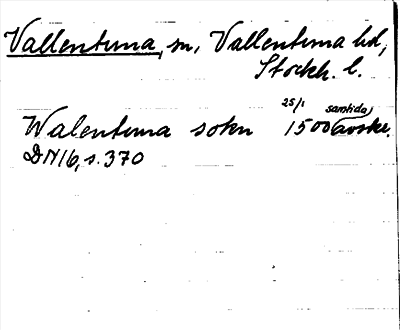 Vallentuna, sn, Vallentuna hd,
Stockh. l.
Walentuna sokn 25/1 1500 samtida avskr.
DN 16, s. 370